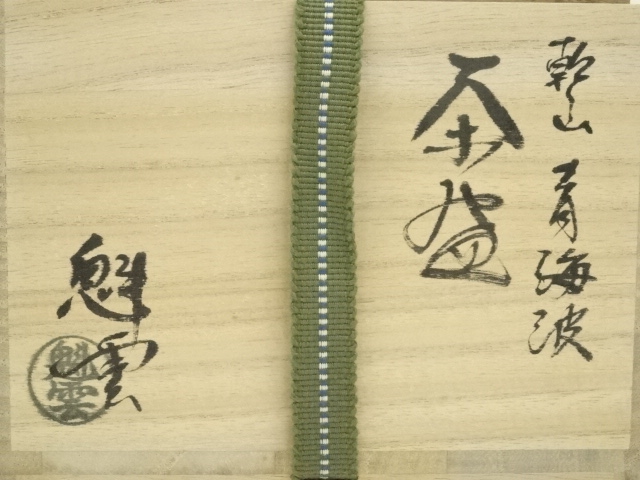 乾山 青海波
茶盌
魁雲
魁雲